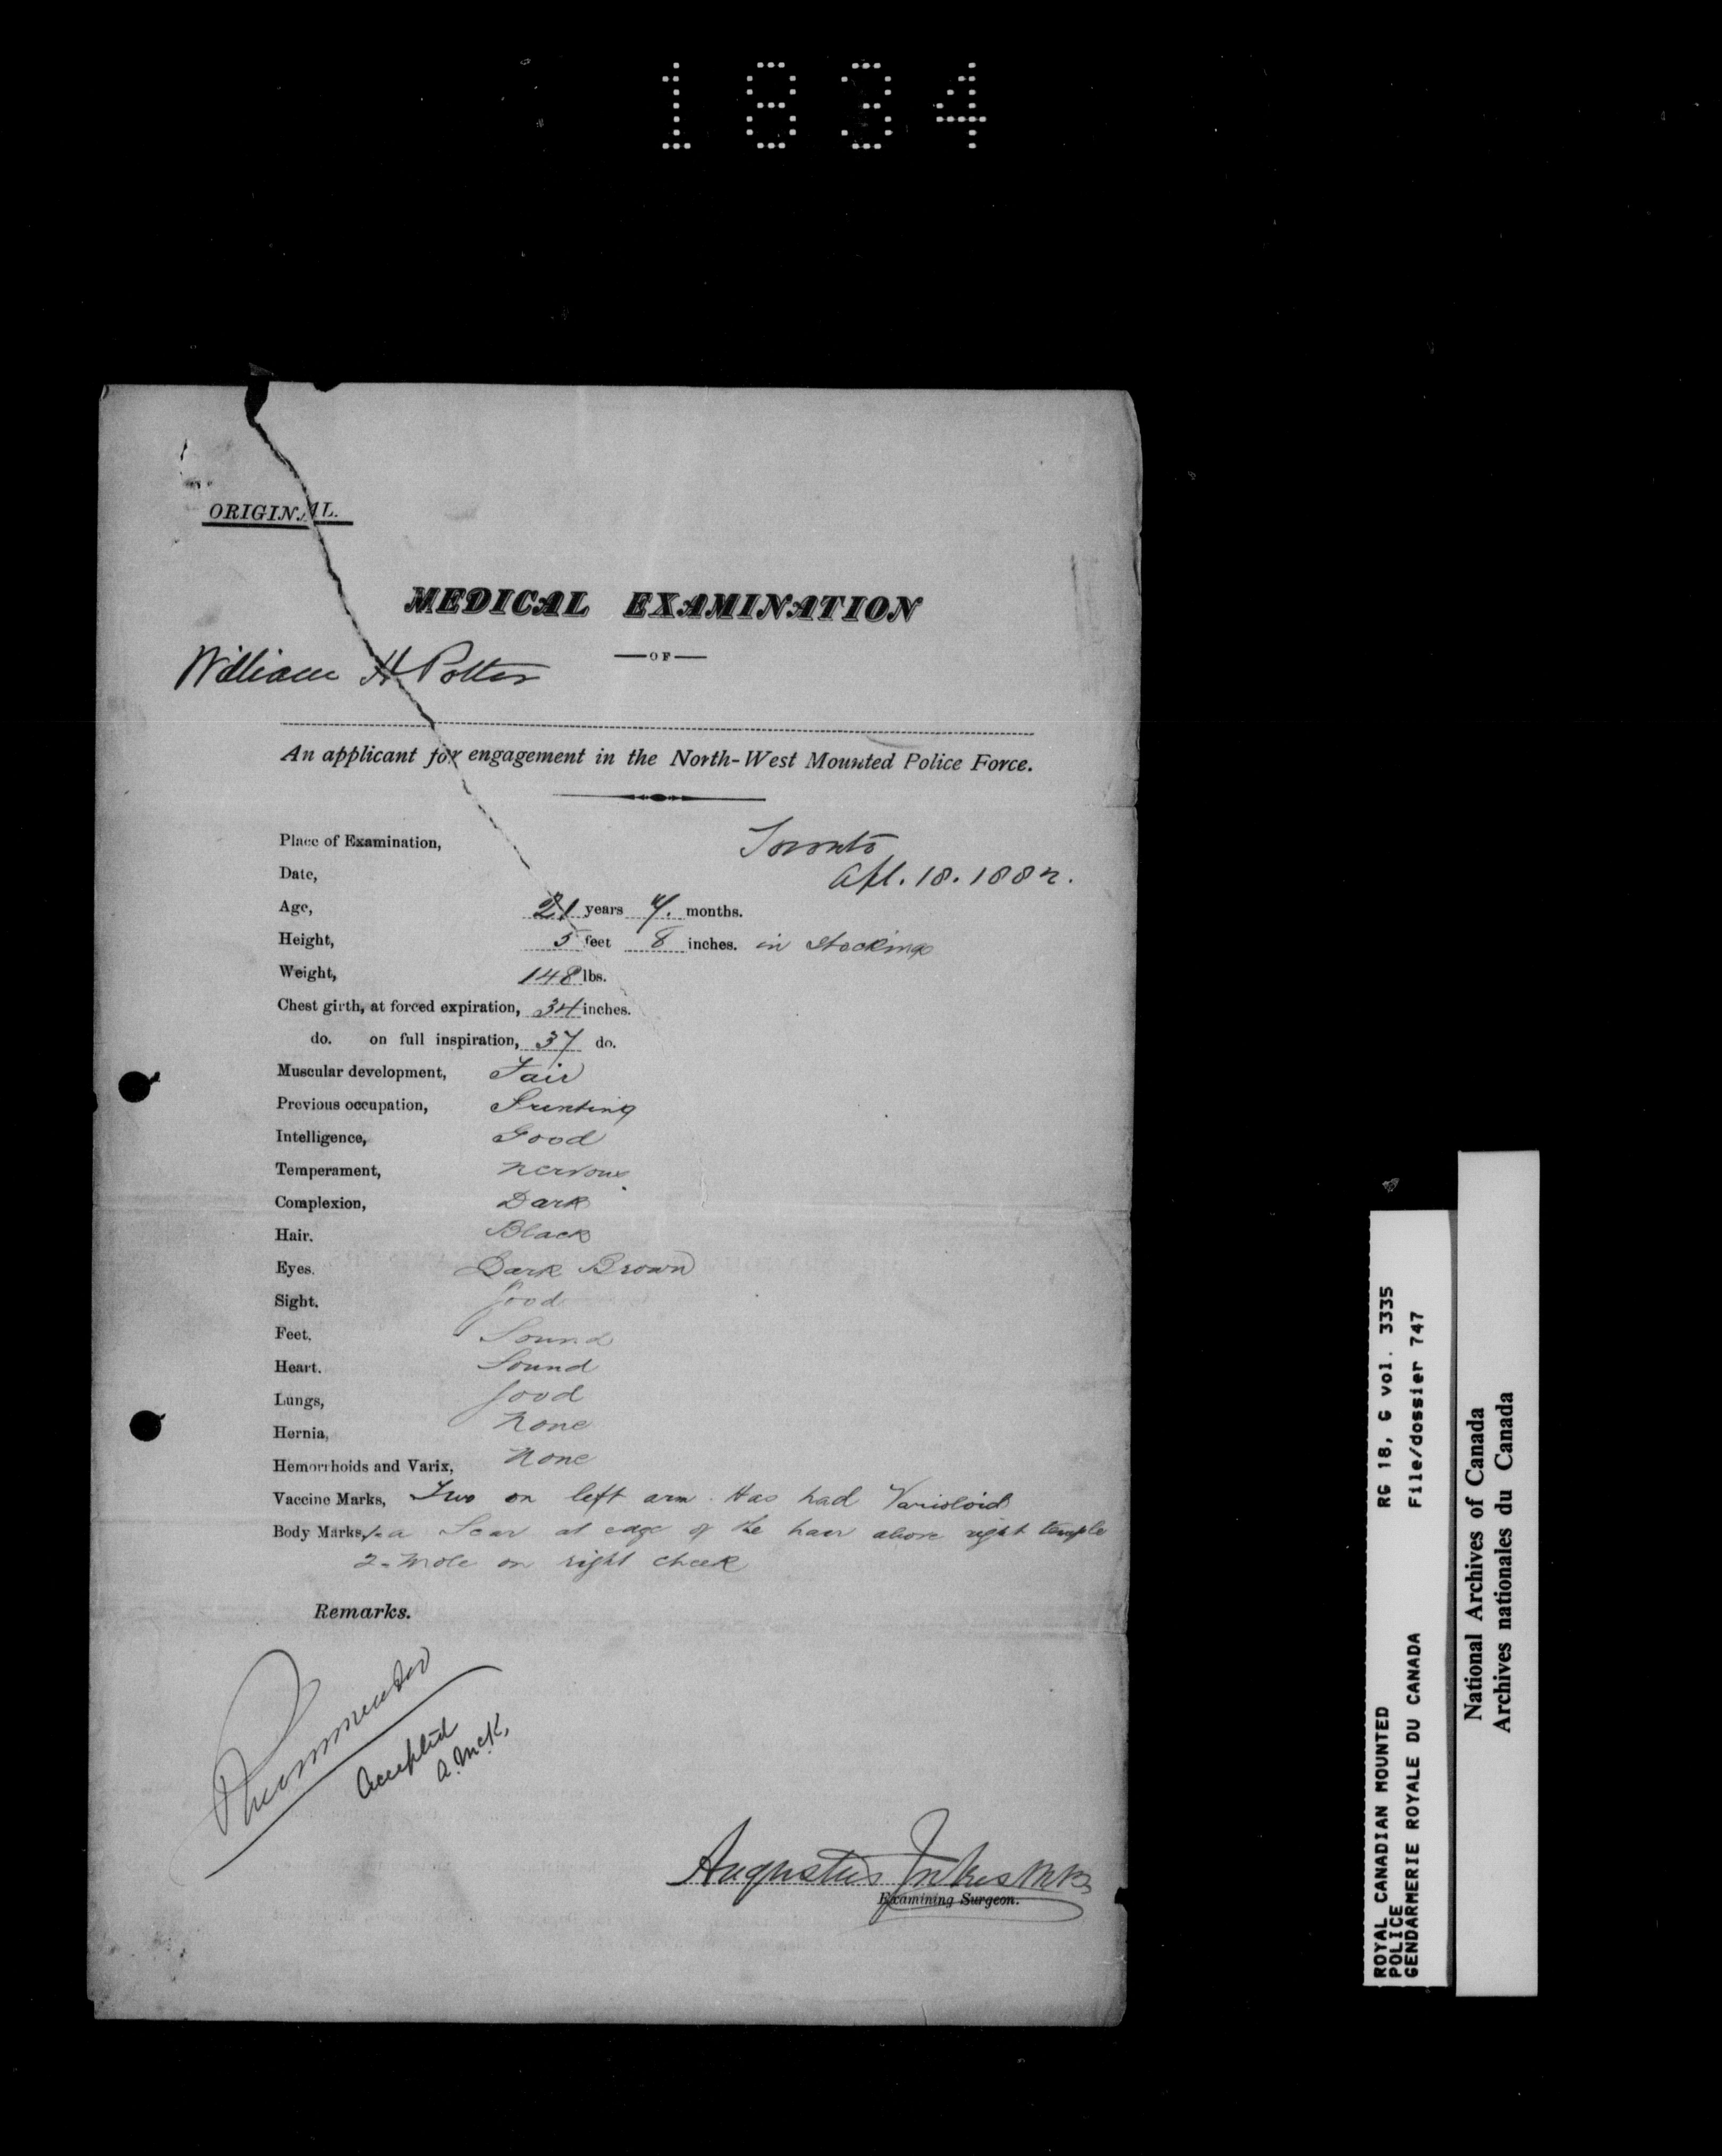 1834
ORIGINAL.
MEDICAL EXAMINATION
OF
William H Potter
An applicant for engagement in the North-West Mounted Police Force.
Place of Examination, Toronto
Date, Apl. 18. 1882.
Age, 21 years 7. months.
Height, 5 feet 8 inches. in stockings
Weight, 148 lbs.
Chest girth, at forced expiration, 34 inches.
do. on full inspiration, 37 do.
Muscular development, Fair
Previous occupation, Printing
Intelligence, Good
Temperament, nervous.
Complexion, Dark
Hair. Black
Eyes. Dark Brown
Sight. Good
Feet. Sound
Heart. Sound
Lungs, Good
Hernia, None
Hemorrhoids and Varix, None
Vaccine Marks, Two on left arm. Has had Varioloid
Body Marks, 1- a Scar at edge of the hair above right temple
2- Mole on right cheek
Remarks.
Recommended
Accepted
A. McK.
Augustus Jukes M.B.
Examining Surgeon.
ROYAL CANADIAN MOUNTED RG 18, G vol. 3335
POLICE
GENDARMERIE ROYALE DU CANADA File/dossier 747
National Archives of Canada
Archives nationales du Canada